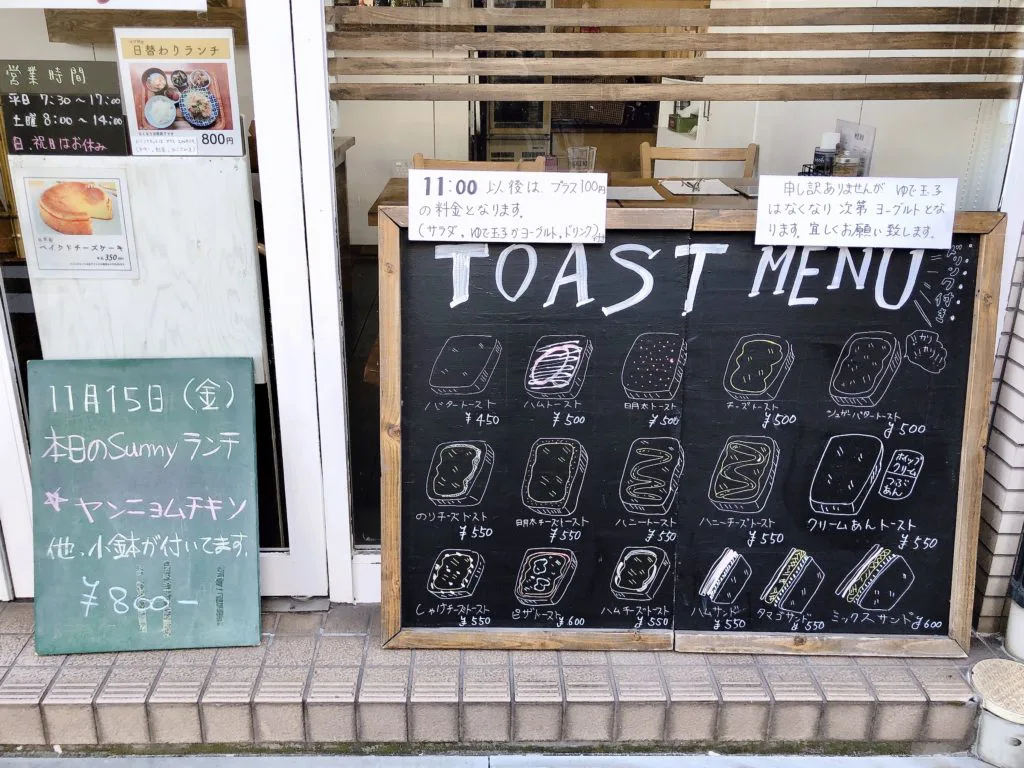 営業時間
平日 7:30〜17:00
土曜 8:00〜14:00
日、祝日はお休み
日替わりランチ
800円
ベイクドチーズケーキ
350
11月15日(金)
本日のSunnyランチ
☆ヤンニョムチキン
他、小鉢が付いてます。
¥800-
11:00 以後は、プラス100円
の料金となります。
(サラダ。ゆで玉子かヨーグルト。ドリンク)付
申し訳ありませんが ゆで玉子
はなくなり次第 ヨーグルトとな
ります。宜しくお願い致します。
TOAST MENU
ドリンク付き
バタートースト
¥450
ハムトースト
¥500
明太トースト
¥500
チーズトースト
¥500
カリ
カリ!
シュガーバタートースト
¥500
のりチーズトースト
¥550
明太チーズトースト
¥550
ハニートースト
¥550
ハニーチーズトースト
¥550
ホイップ
クリーム
つぶ
あん
クリームあんトースト
¥550
しゃけチーズトースト
¥550
ピザトースト
¥600
ハムチーズトースト
¥550
ハムサンド
¥550
タマゴサンド
¥550
ミックスサンド
¥600